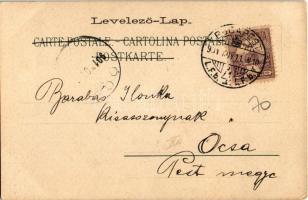 Levelező-Lap.
CARTE POSTALE - CARTOLINA POSTALE
POSTKARTE.
Barabás Ilonka
kisasszonynak
Ócsa
Pest megye
70